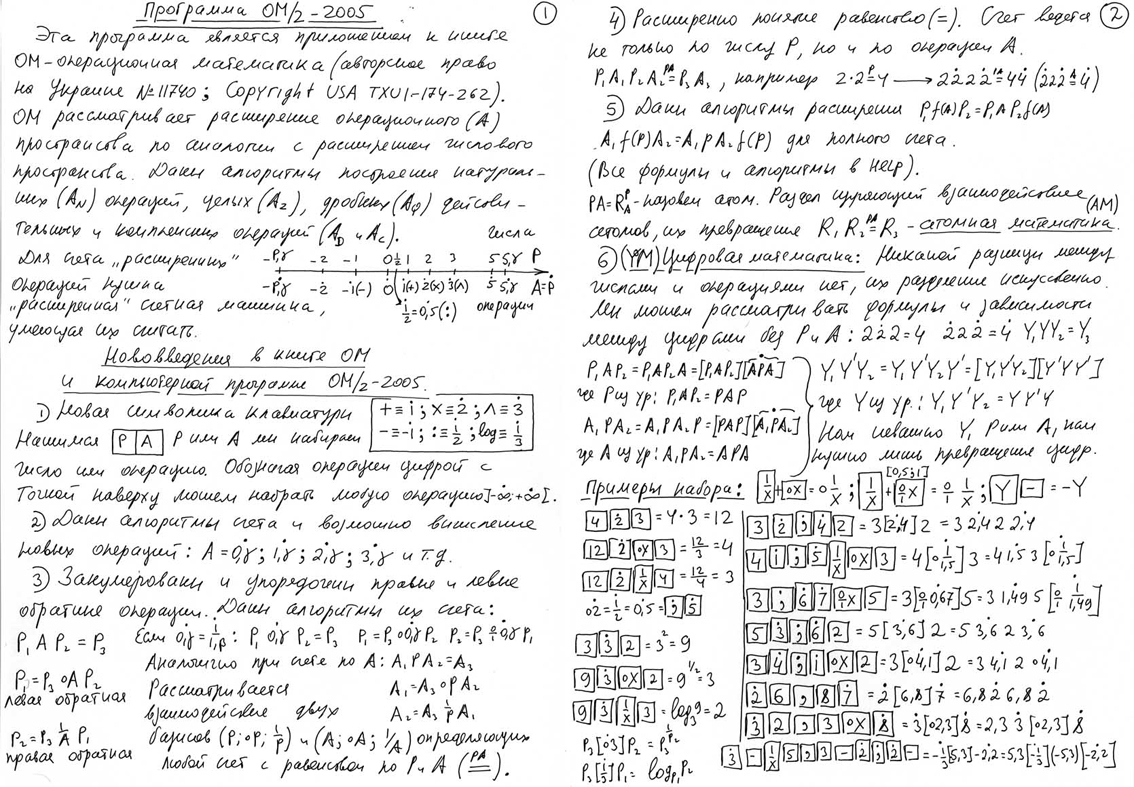 Программа ОМ/2-2005 ①
Эта программа является приложением к книге
ОМ-операционная математика (авторское право
на Украине №11740; Copyright USA TXU1-174-262).
ОМ рассматривает расширение операционного (А)
пространства по аналогии с расширением числового
пространства. Даны алгоритмы построения натураль-
ных (A_N) операций, целых (A_Z), дробных (A_Q) действи-
тельных и комплексных операций (A_D и A_C). числа
Для счета „расширенных" -P,γ -2 -1 0 ½ 1 2 3 5 5,γ P
операций нужна -Ṗ,γ -2̇ -i(-) 0̇ i(+) 2̇(×) 3̇(^) 5̇ 5̇,γ A=Ṗ
„расширенная" счетная машинка, i/2=0̇,5(:) операции
умеющая их считать.
Нововведения в книге ОМ
и компьютерной программе ОМ/2-2005.
1) Новая символика клавиатуры + ≡ i; × ≡ 2̇; ^ ≡ 3̇
Нажимая P A P или A мы набираем - ≡ -i; : ≡ i/2; log ≡ i/3
число или операцию. Обозначая операции цифрой с
точкой наверху можем набрать любую операцию ]-∞̇;+∞̇[.
2) Даны алгоритмы счета и возможно вычисление
новых операций: A = 0̇,γ; 1̇,γ; 2̇,γ; 3̇,γ и т.д.
3) Занумерованы и упорядочены правые и левые
обратные операции. Даны алгоритмы их счета:
P₁ A P₂ = P₃ Если 0̇,γ = i/1,β: P₁ 0̇,γ P₂ = P₃ P₁ = P₃ 00̇,γ P₂ P₂ = P₃ 0/1 0̇,γ P₁
Аналогично при счете по A: A₁ P A₂ = A₃
P₁ = P₃ 0A P₂ Рассматривается A₁ = A₃ 0P A₂
левая обратная взаимодействие двух A₂ = A₃ 1/P A₁
P₂ = P₃ 1/A P₁ базисов (P; 0P; 1/P) и (A; 0A; 1/A) определяющих
правая обратная любой счет с равенством по P и A (PA=).
4) Расширено понятие равенство (=). Счет ведется ②
не только по числу P, но и по операции A.
P₁ A₁ P₂ A₂ PA= P₃ A₃, например 2·2 P= 4 → 2 2̇ 2 2̇ PA= 4 4̇ (2̇ 2 2̇ A= 4̇)
5) Даны алгоритмы расширения P₁ f(A) P₂ = P₁ A P₂ f(A)
A₁ f(P) A₂ = A₁ P A₂ f(P) для полного счета.
(Все формулы и алгоритмы в Help).
PA = R_A^P - назовем атом. Раздел изучающий взаимодействие (AM)
атомов, их превращение R₁ R₂ PA= R₃ - атомная математика.
6) (YM) Цифровая математика: Никакой разницы между
числами и операциями нет, их разделение искусственно.
Мы можем рассматривать формулы и зависимости
между цифрами без P и A: 2 2̇ 2 = 4 2̇ 2 2̇ = 4̇ Y₁YY₂ = Y₃
P₁ A P₂ = P₁ A P₂ A = [P₁ A P₂][A P A] Y₁Y'Y₂ = Y₁Y'Y₂Y' = [Y₁Y'Y₂][Y'YY']
где P из ур: P₁ A P₂ = P A P где Y из ур: Y₁Y'Y₂ = YY'Y
A₁ P A₂ = A₁ P A₂ P = [P A P][A₁ P A₂] Нам неважно Y₁ P или A, нам
где A из ур: A₁ P A₂ = A P A нужно лишь превращение цифр.
Примеры набора: 1/X + 0X = 0 1/X; 1/X + 0/1 X = 0/1 1/X; Y - = -Y
4 2̇ 3 = 4·3 = 12
12 2̇ 0X 3 = 12/3 = 4
12 2̇ 1/X 4 = 12/4 = 3
02̇ = i/2 = 0̇,5 = , 5̇
3 3̇ 2 = 3² = 9
9 3̇ 0X 2 = 9^1/2 = 3
9 3̇ 1/X 3 = log₃9 = 2
P₃ [03̇] P₂ = P₃^1/P₂
P₂ [i/3] P₁ = log_P₁ P₂
3 2̇ , 4̇ 2 = 3 [2̇,4] 2 = 3 2̇,4 2 2̇,4
4 i , 5̇ 1/X 0X 3 = 4 [0 i/1,5] 3 = 4 1̇,5 3 [0 i/1,5]
3 , 6̇ 7̇ 0/1 X 5 = 3 [0/1 0̇,67] 5 = 3 1,49 5 [0/1 i/1,49]
5 3̇ , 6̇ 2 = 5 [3̇,6] 2 = 5 3̇,6 2 3̇,6
3 4̇ , i 0X 2 = 3 [04̇,1] 2 = 3 4̇,1 2 04̇,1
2̇ 6 , 8 7̇ = 2̇ [6,8] 7̇ = 6,8 2̇ 6,8 2̇
3̇ 2 , 3 0X 8̇ = 3̇ [02,3] 8̇ = 2,3 3̇ [02,3] 8̇
3̇ - 1/X 5 , 3 - 2̇ , 2̇ - = -i/3 [5,3] -2̇,2 = 5,3 [-i/3] (-5,3) [-2̇,2]